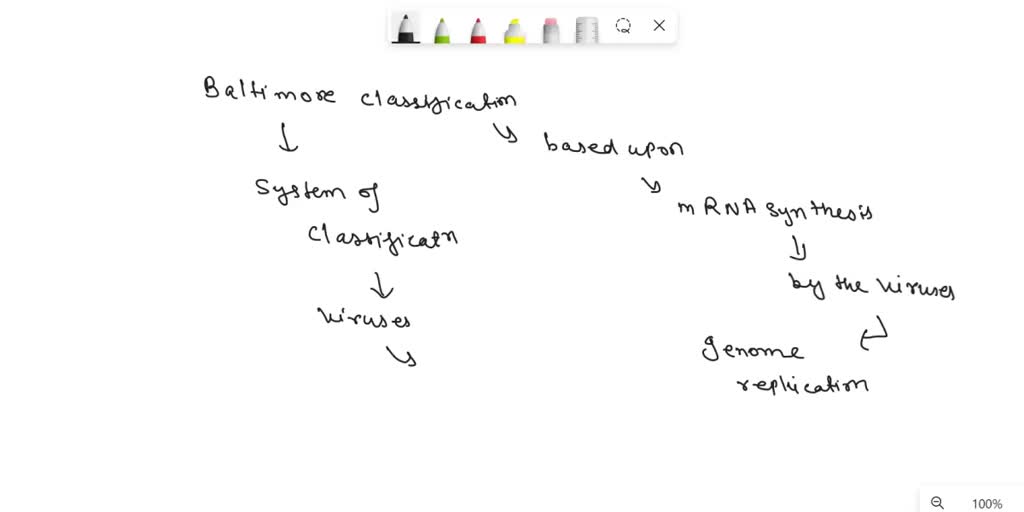 Baltimore classification
based upon
System of
classificatn
viruses
mRNA synthesis
by the viruses
genome
replication
100%